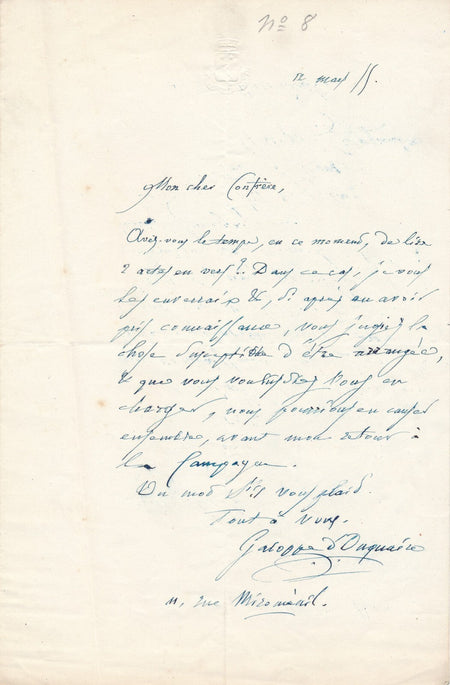 No 8
12 mars 55.
Mon cher Confrère,
Avez-vous le temps, en ce moment, de lire
2 actes en vers ? Dans ce cas, je vous
les enverrais &, si après en avoir
pris connaissance, vous jugiez la
chose susceptible d'être arrangée,
& que vous voulussiez vous en
charger, nous pourrions en causer
ensemble, avant mon retour à
la Campagne.
Un mot s'il vous plaît.
Tout à vous.
Galoppe d'Onquaire
11, rue Miroménil.